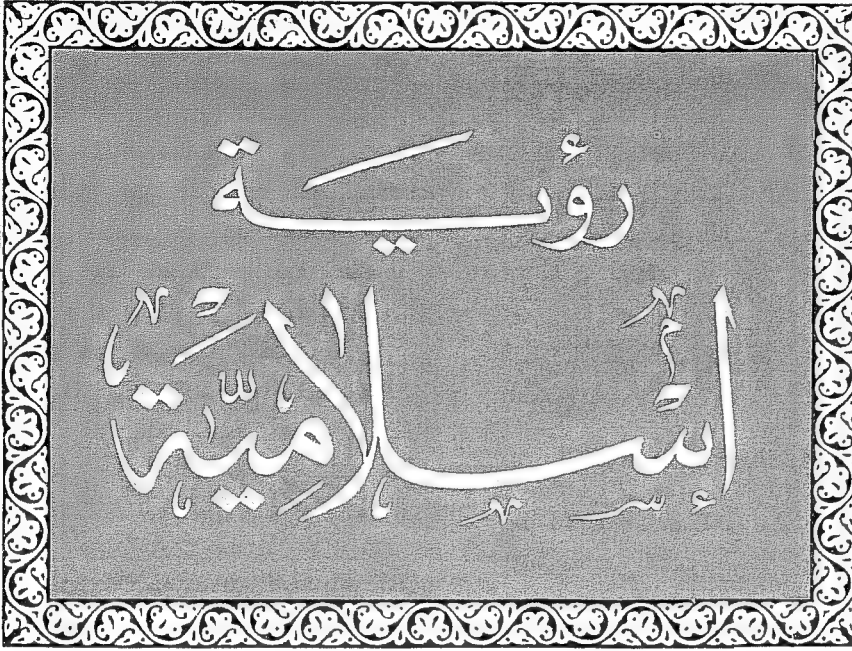 رؤية
إسلاميّة